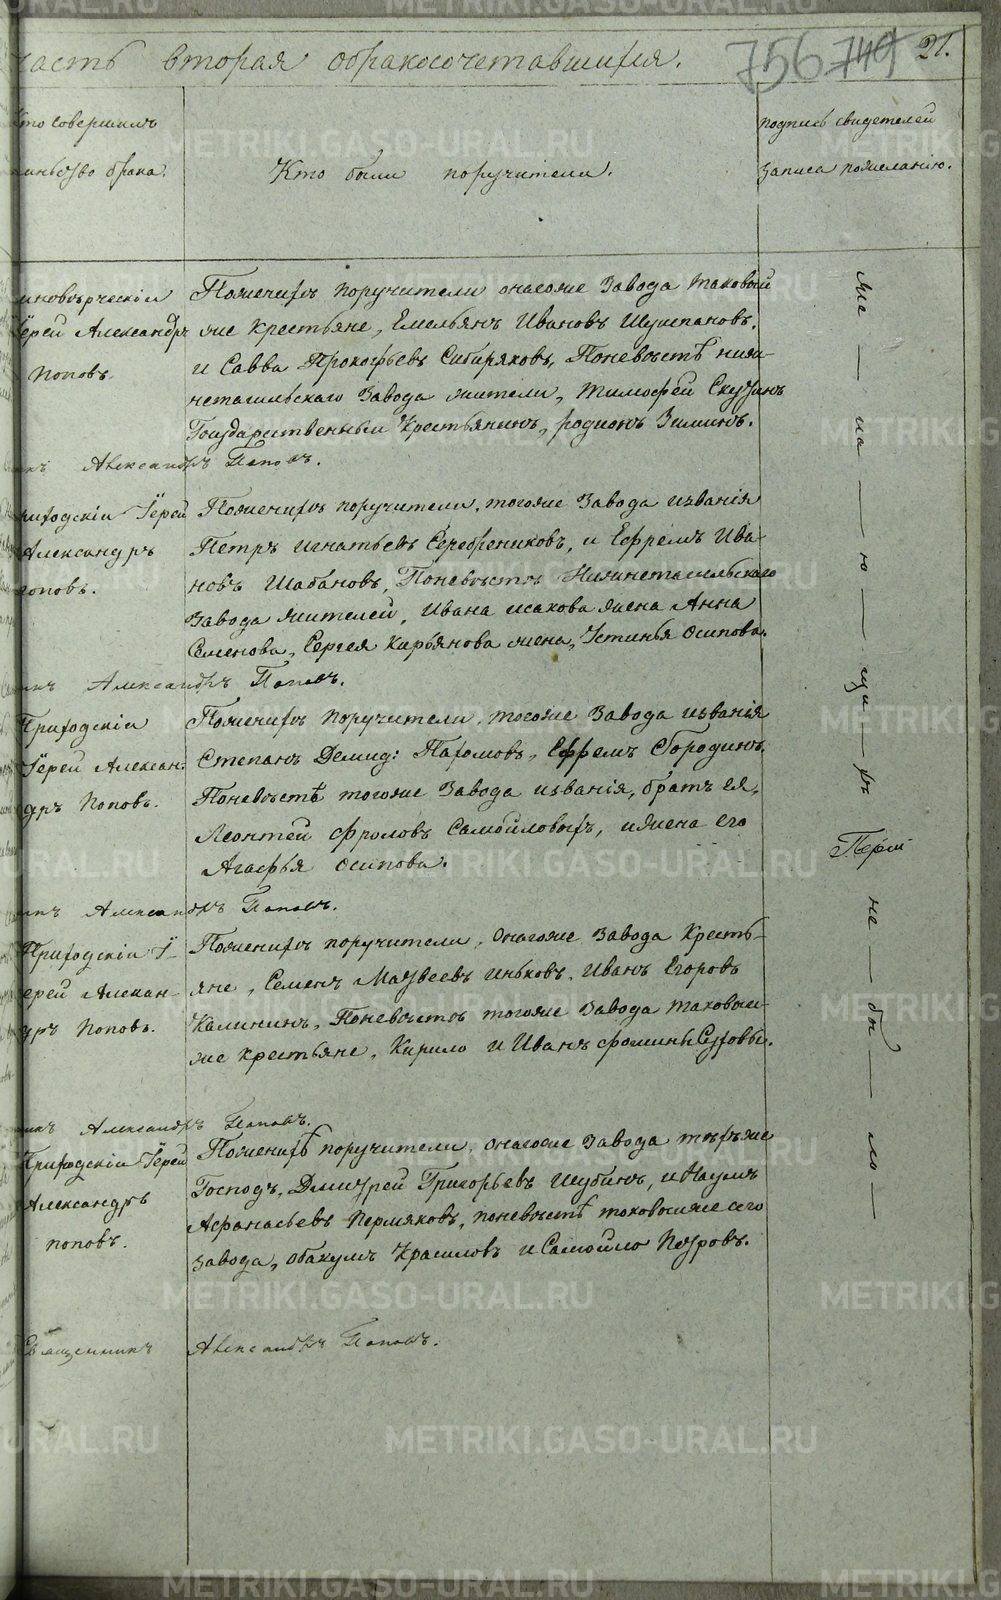 часть вторая обракосочетавшихся.
756 749 21.
Кто совершилъ
таинство брака.
Кто были поручители.
подпись свидетелей
записа пожеланію.
Единоверческіи
Іерей Александръ
Поповъ.
Поженихѣ поручители онагоже Завода таковыи
же крестьяне, Емельянъ Ивановъ
и Савва Прокофьевъ Сибиряковъ, Поневѣстѣ нижн-
нетагильскаго Завода жители, Тимофеи
Государственныи крестьянинъ, родионъ Зиминъ.
Александръ Поповъ.
Приходскіи Іерей
Александръ
Поповъ.
Поженихѣ поручители, тогоже Завода изванія
Петръ Игнатьевъ Серебрениковъ, и Ефремъ Ива-
новъ Шабановъ, Поневѣстѣ Нижнетагильскаго
Завода жителей, Ивана исакова жена Анна
Семенова, Сергея Кирьянова жена, Устинья Осипова.
Александръ Поповъ.
Приходскіи
Іерей Алексан-
дръ Поповъ.
Поженихѣ поручители, тогоже Завода изванія
Степанъ Демид: Пахомовъ, Ефремъ Бородинъ,
Поневѣстѣ тогоже Завода изванія, братъ ея,
Леонтей Фроловъ Самойловыхъ, и жена его
Агафья Осипова.
Александръ Поповъ.
Приходскіи І-
ерей Алекан-
дръ Поповъ.
Поженихѣ поручители, онагоже Завода Кресть-
яне, Семенъ Матвеевъ Иньковъ, Иванъ Егоровъ
Калининъ, Поневѣстѣ тогоже Завода таковыи-
же крестьяне, Кирило и Иванъ Фомины
Александръ Поповъ.
Приходскіи Іерей
Александръ
поповъ.
Поженихѣ поручители, онагоже Завода тѣхъже
Господъ, Дмитрей Григорьевъ Шубинъ, и Наумъ
Афанасьевъ Пермяковъ, поневѣстѣ таковыиже сего
завода, Абакумъ Красиловъ и Самойло Петровъ.
Священникъ Александръ Поповъ.
же — на — ю — ща — хъ
не — бы — ло —
METRIKI.GASO-URAL.RU